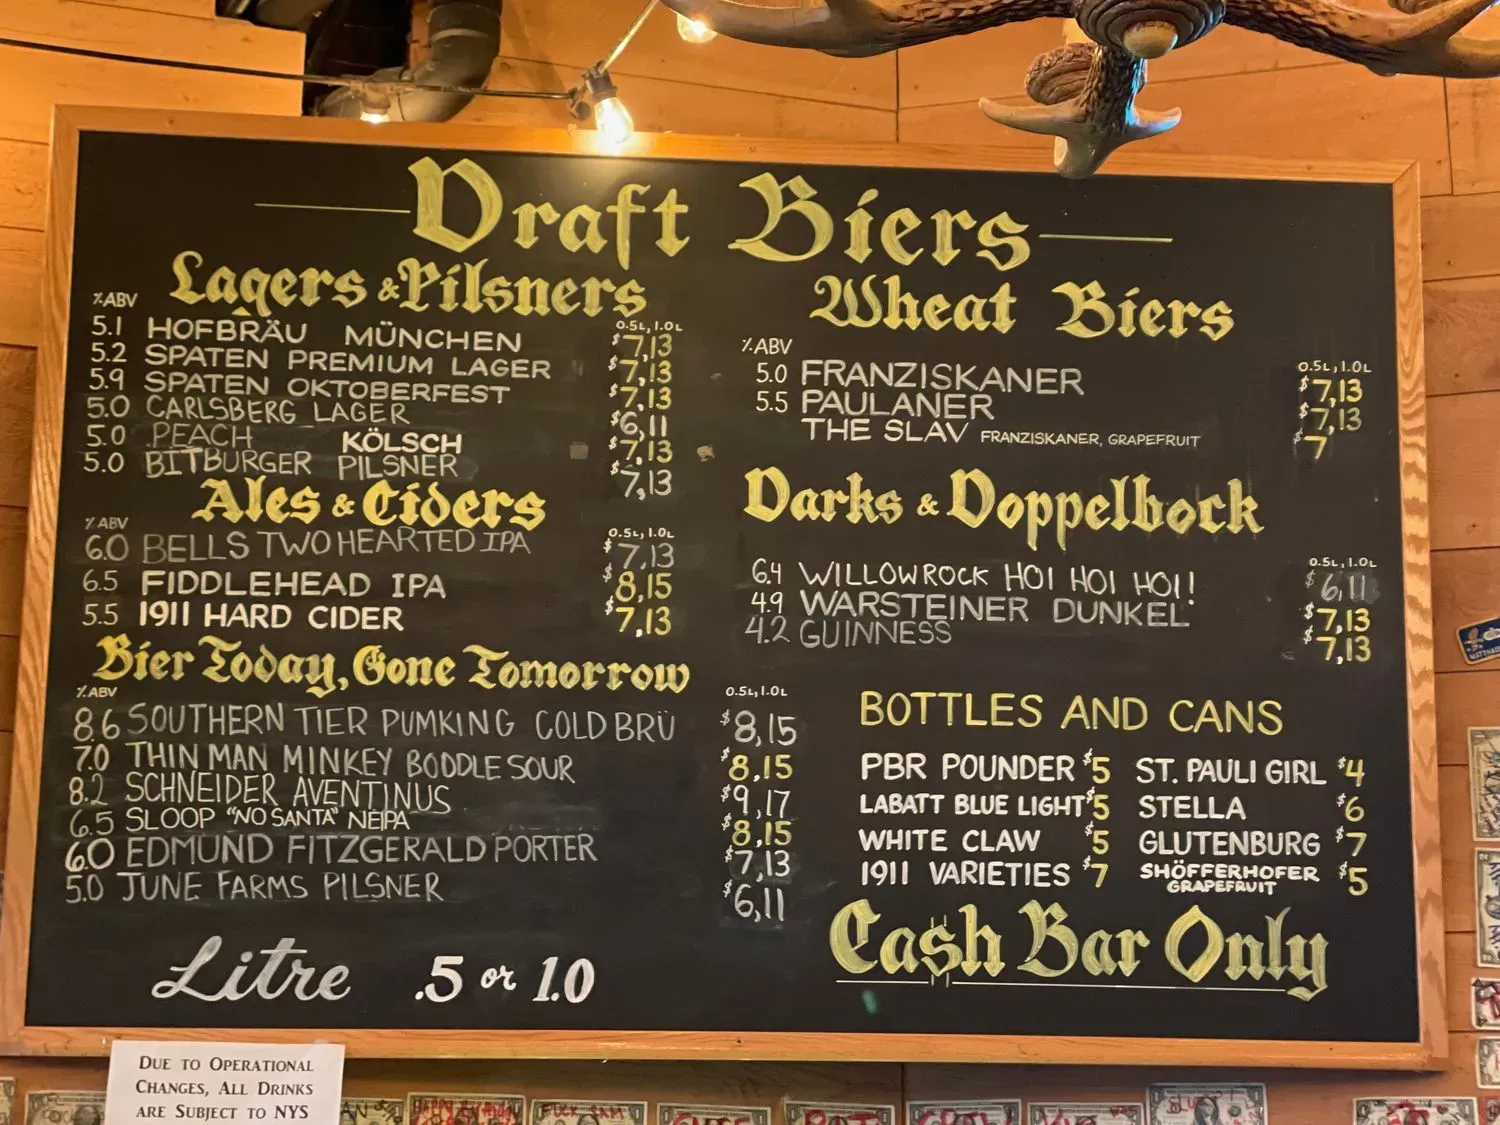 Draft Biers
Lagers & Pilsners
%ABV
0.5L, 1.0L
5.1 HOFBRÄU MÜNCHEN $7,13
5.2 SPATEN PREMIUM LAGER $7,13
5.9 SPATEN OKTOBERFEST $7,13
5.0 CARLSBERG LAGER $6,11
5.0 PEACH KÖLSCH $7,13
5.0 BITBURGER PILSNER $7,13
Ales & Ciders
%ABV
0.5L, 1.0L
6.0 BELLS TWO HEARTED IPA $7,13
6.5 FIDDLEHEAD IPA $8,15
5.5 1911 HARD CIDER $7,13
Bier Today, Gone Tomorrow
%ABV
0.5L, 1.0L
8.6 SOUTHERN TIER PUMKING COLD BRÜ $8,15
7.0 THIN MAN MINKEY BOODLE SOUR $8,15
8.2 SCHNEIDER AVENTINUS $9,17
6.5 SLOOP "NO SANTA" NEIPA $8,15
6.0 EDMUND FITZGERALD PORTER $7,13
5.0 JUNE FARMS PILSNER $6,11
Litre .5 or 1.0
Wheat Biers
%ABV
0.5L, 1.0L
5.0 FRANZISKANER $7,13
5.5 PAULANER $7,13
THE SLAV FRANZISKANER, GRAPEFRUIT $7
Darks & Doppelbock
0.5L, 1.0L
6.4 WILLOWROCK HOI HOI HOI! $6,11
4.9 WARSTEINER DUNKEL $7,13
4.2 GUINNESS $7,13
BOTTLES AND CANS
PBR POUNDER $5 ST. PAULI GIRL $4
LABATT BLUE LIGHT $5 STELLA $6
WHITE CLAW $5 GLUTENBURG $7
1911 VARIETIES $7 SHÖFFERHOFER
GRAPEFRUIT $5
Ca$h Bar Only
DUE TO OPERATIONAL
CHANGES, ALL DRINKS
ARE SUBJECT TO NYS